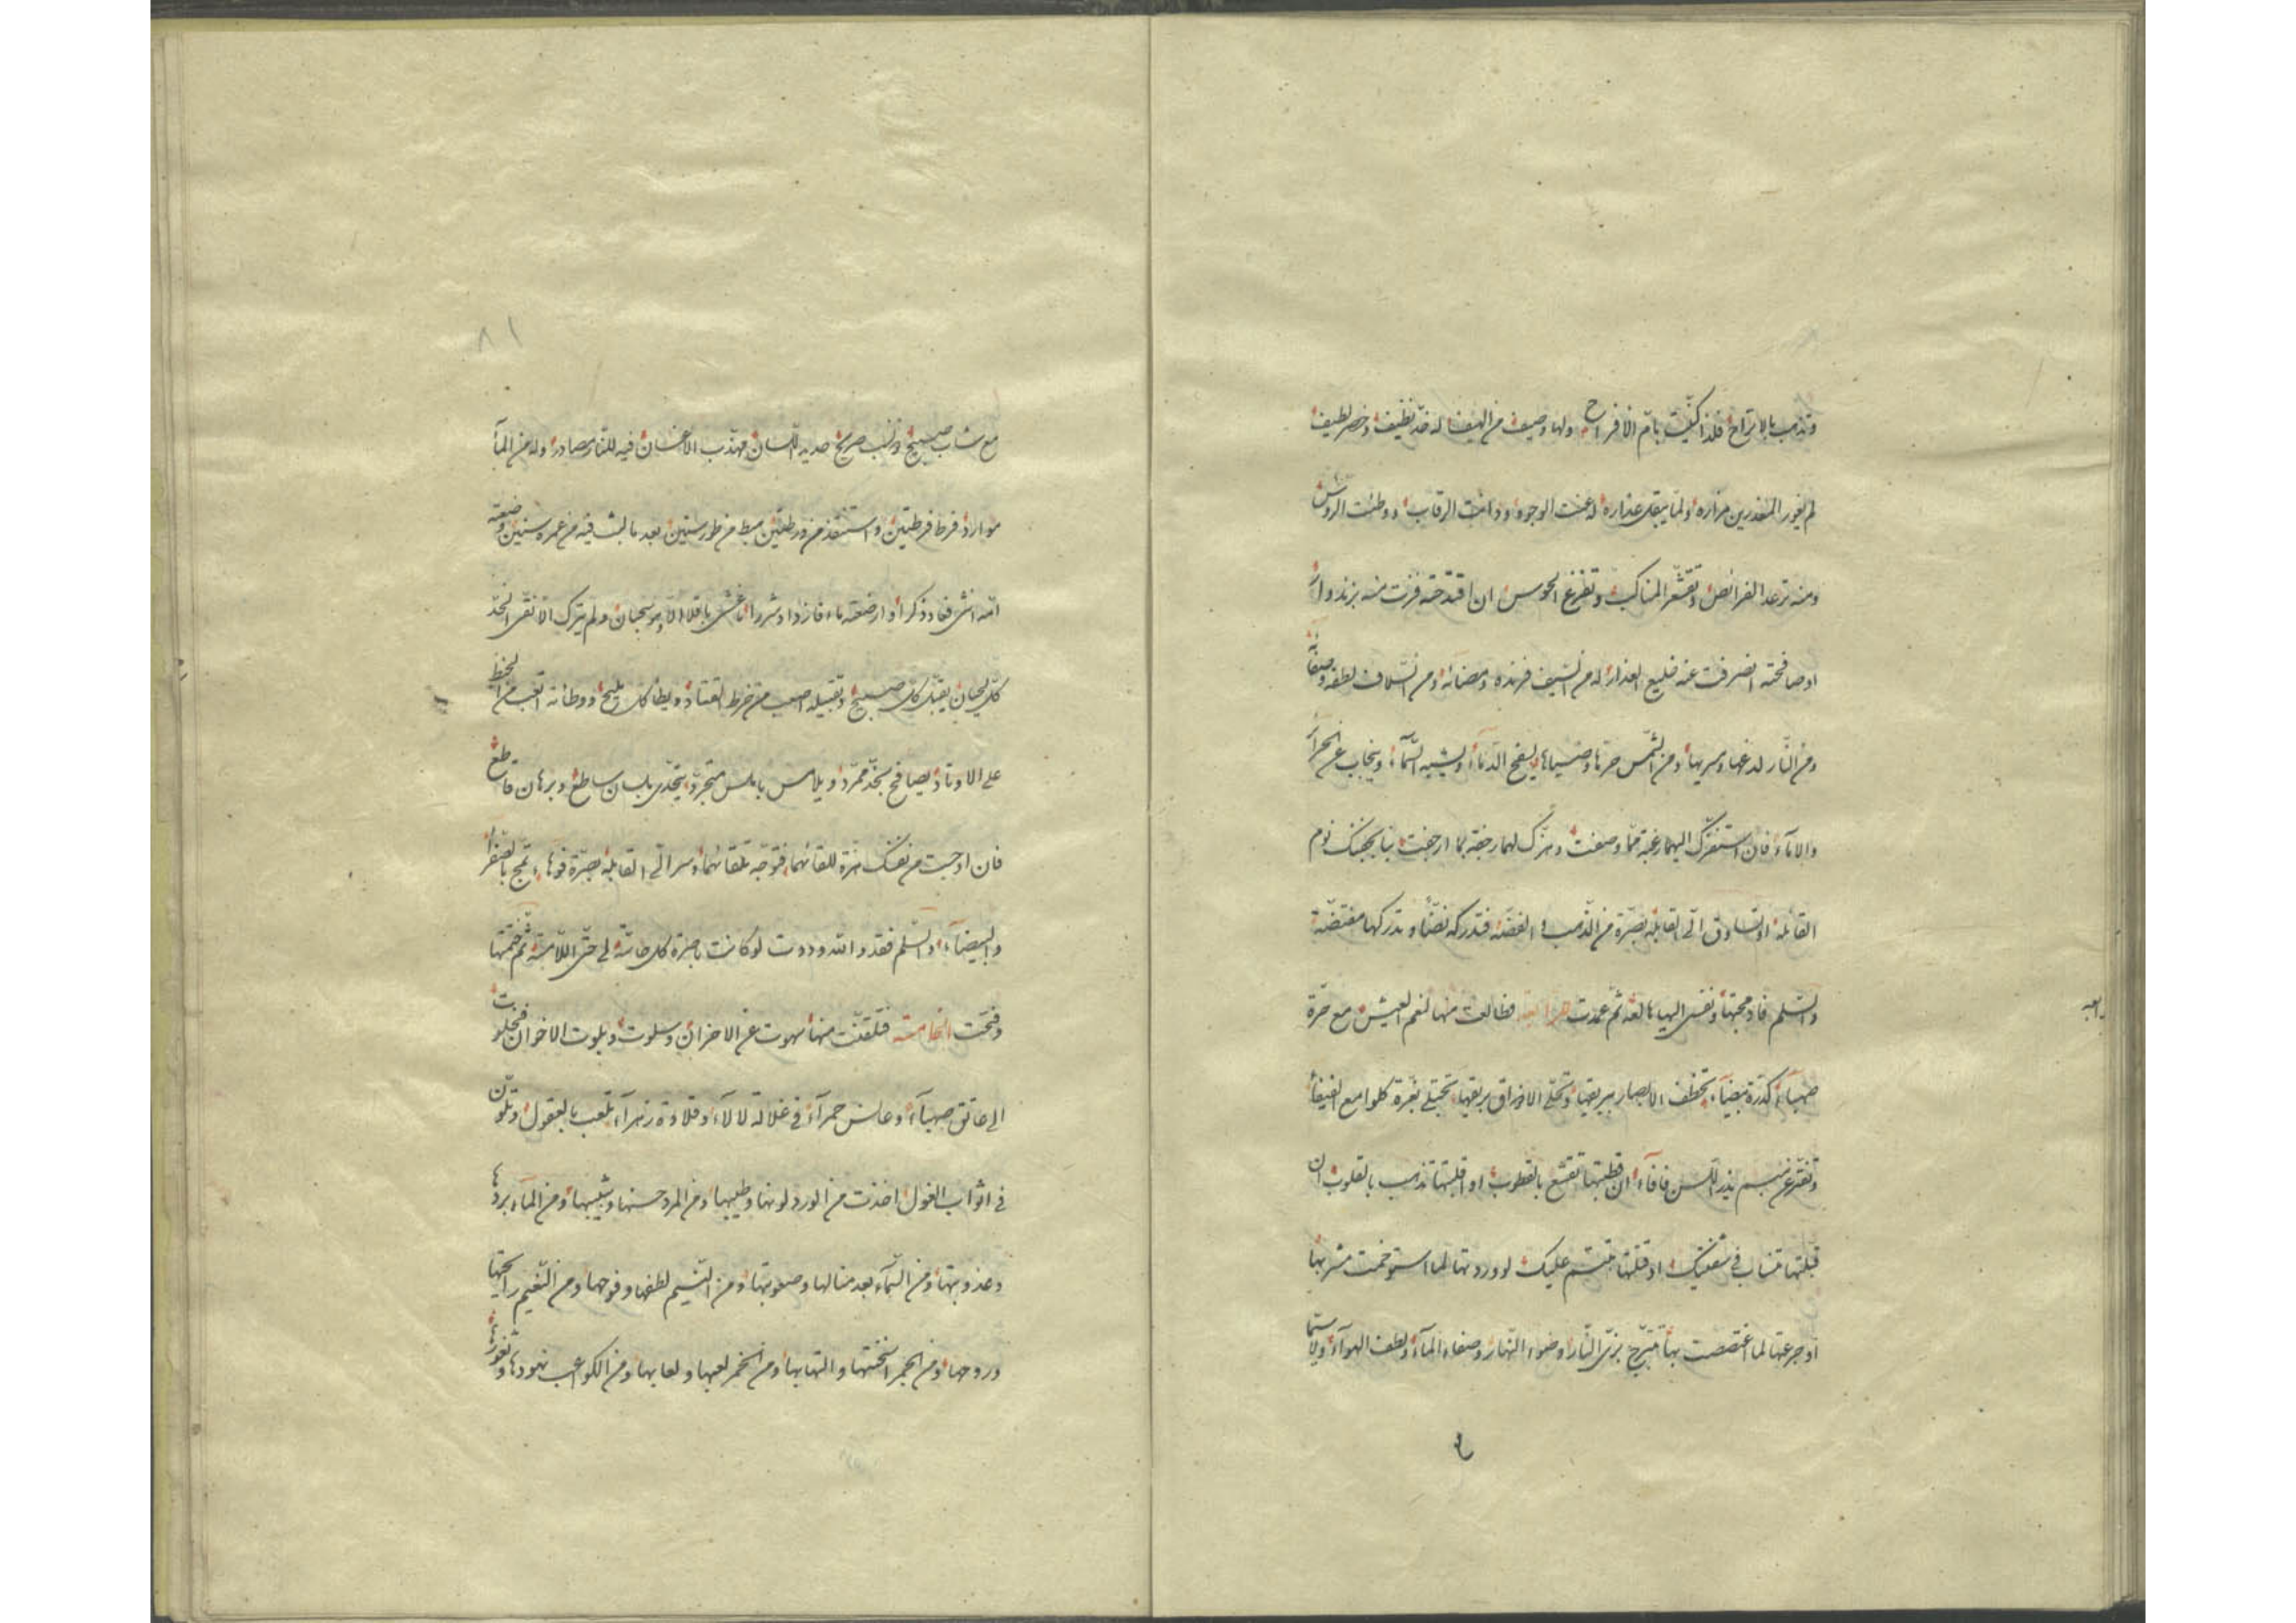 وتذهب بالاتراح فلذا كنّيت بام الافراح ولها وصيف من الهيف له خدّ نظيف وخصر لطيف
لم يغور المنغدرين مزاره ولمّا يبقل عذاره له عنت الوجوه وذانت الرقاب ووطئت الروس
ومنه ترعد الفرائص وتقشعر المناكب وتفزع الحوس ان اقتدحته فزت منه بزند وار
او صافحته انصرفت عنه خليع العذار له من السيف فرنده ومضائه ومن السلاف لطفه وصفائه
ومن النّار لدغها وسريها ومن الشمس حرّها وضياها يسفح الدّماء ويشبه السّماء وينجاب عن الحرآئر
والاماء فان استفزّك اليهما رغبة ممّا وصفت وهزّك لهما رجفة بما ارجفت بنا يجبنك نوم
القائلة او تساوق الى القابلة بصرّة من الذهب والفضّة فتدركه نضّا وتدركها مفتضّة
والسّلم فادمجتها ونفسى اليها بالغة ثم عمدت الى الرابعة فطالعت منها لنعم العيش مع حرّة
صهباء كدرّة بيضاء تخطف الابصار ببريقها وتحلى الاذواق بريقها تجتلى بغرّة كلوامع الفيفاء
وتفترّ عن مبسم يذر اللّسن فافاء ان قطبتها تقشع بالقطوب او اقلبتها تذهب بالقلوب ان
قبلتها تنساب فى شفتيك او قتلتها تبتسم عليك لو وردتها لما استوخمت مشربها
او جرعتها لما اغتصصت بها تتبرّج بزىّ النّار وضوء النّهار وصفاء المآء ولطف الهوآء ولا سيّما
رابعه
٨١
مع شاب صبيح ونسب صريح حديد اللّسان مهذّب الاغسان فيه للنّار مصادر وله من المآء
موارد فرط فرطتين واستنقذ من ورطتين هبط من طور سنين بعد ما لبث فيه من عمره سنين وضعته
امّه انثى فعاد ذكرا وارضعته ماء فازداد شررا عش باقلا الا وهو سحبان ولم يترك الا نقى الخدّ
كلّ لحيان يقبّل كل صبيح وتقبيله اصعب من خرط القتاد ويطأ كل مليح ووطائه اتعب من الخط
على الاوتاد يصافح بخدّ ممرّد ويلامس باملس متجرّد يتحدّى بلسان ساطع وبرهان قاطع
فان اوجست من نفسك هزّة للقائهما فتوجّه تلقائهما وسر الى القابلة بصرّة فوهاء تمج بالصفراء
والبيضآء والسّلم فقد والله وددت لو كانت باصرة كل حاسّة لى حتى اللامسة ثم ختمتها
وفتحت الخامسة فتلقنت منها سهوت عن الاحزان وسلوت وبلوت الاخوان فخلوت
الى عاتق صهبآء وعانس حمرآء فى غلالة لالاء وقلادة زهرآء تلعب بالعقول وتتلوّن
فى اثواب الغول اخذت من الورد لونها وطيبها ومن المرد حسنها وشيبها ومن المآء بردها
وعذوبتها ومن السّماء بعد منالها وصعوبتها ومن النّسيم لطفها وفوحها ومن النّعيم رايحتها
وروحها ومن الجمر سخنتها والتهابها ومن الخمر لعبها ولعابها ومن الكواعب نهودها وثغورها